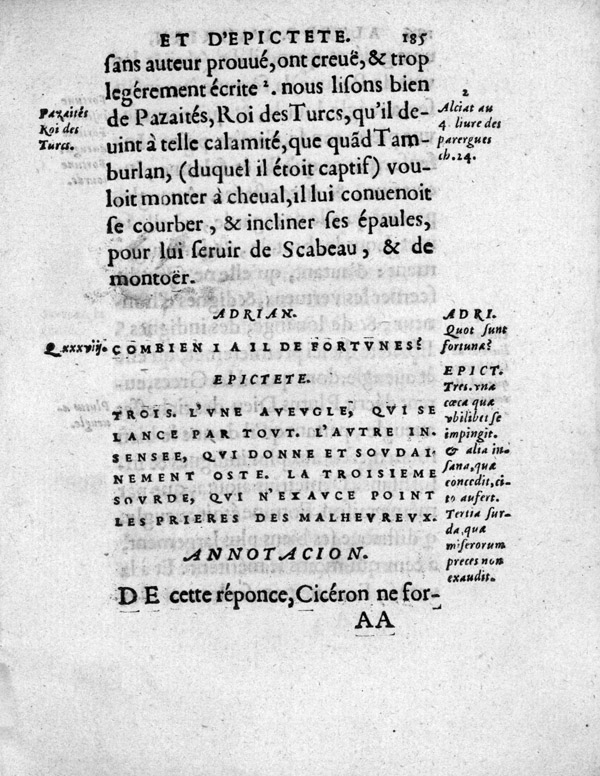 ET D'EPICTETE. 185
sans auteur prouué, ont creuë, & trop
legérement écrite ². nous lisons bien
de Pazaités, Roi des Turcs, qu'il de-
uint à telle calamité, que quãd Tam-
burlan, (duquel il étoit captif) vou-
loit monter à cheual, il lui conuenoit
se courber, & incliner ses épaules,
pour lui seruir de Scabeau, & de
montoër.
Pazaités
Roi des
Turcs.
2
Alciat au
4 liure des
parergues
ch. 24.
ADRIAN.
Q. xxxvij. COMBIEN I A IL DE FORTVNES?
EPICTETE.
TROIS. L'VNE AVEVGLE, QVI SE
LANCE PAR TOVT. L'AVTRE IN-
SENSEE, QVI DONNE ET SOVDAI-
NEMENT OSTE. LA TROISIEME
SOVRDE, QVI N'EXAVCE POINT
LES PRIERES DES MALHEVREVX.
ADRI.
Quot sunt
fortunæ?
EPICT.
Tres. vna
cæca quæ
vbilibet se
impingit.
& alia in-
sana, quæ
concedit, ci-
tò aufert.
Tertia sur-
da, quæ
miserorum
preces non
exaudit.
ANNOTACION.
DE cette réponce, Cicéron ne for-
AA